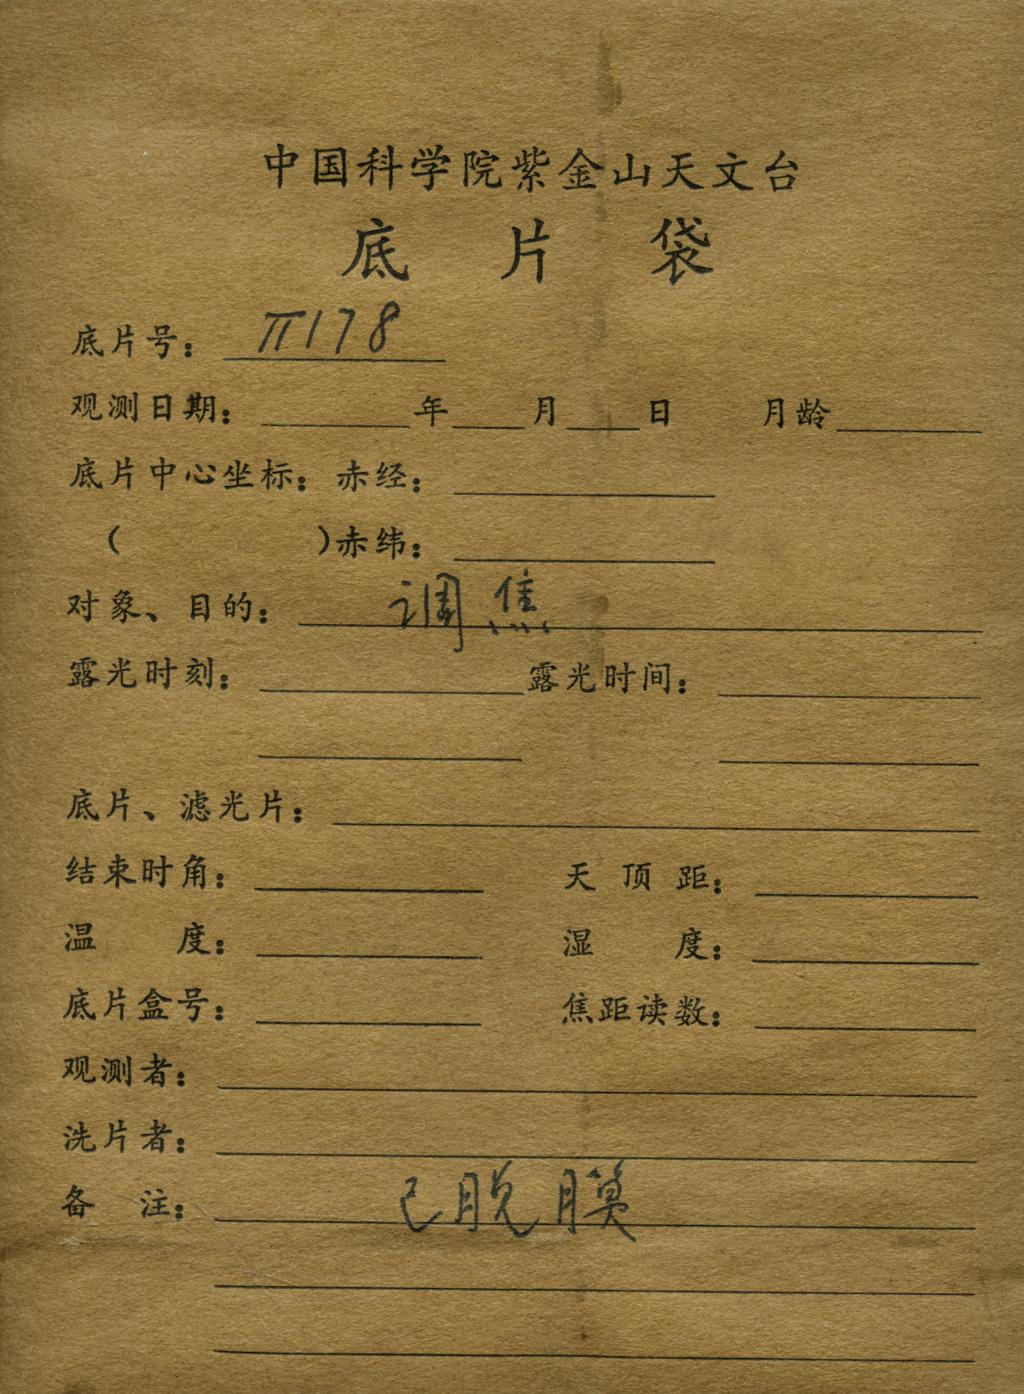 中国科学院紫金山天文台
底片袋
底片号： π178
观测日期： 年 月 日 月龄
底片中心坐标：赤经：
（ ）赤纬：
对象、目的： 调焦
露光时刻： 露光时间：
底片、滤光片：
结束时角： 天顶距：
温度： 湿度：
底片盒号： 焦距读数：
观测者：
洗片者：
备注： 已脱膜